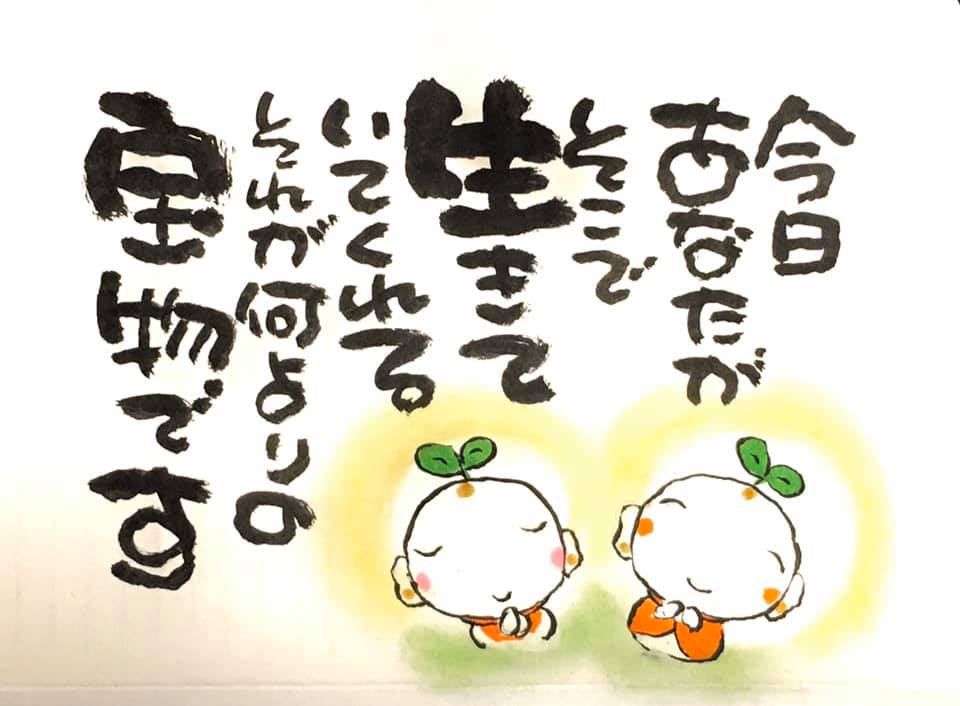 今日
あなたが
そこで
生きて
いてくれる
それが何よりの
宝物です